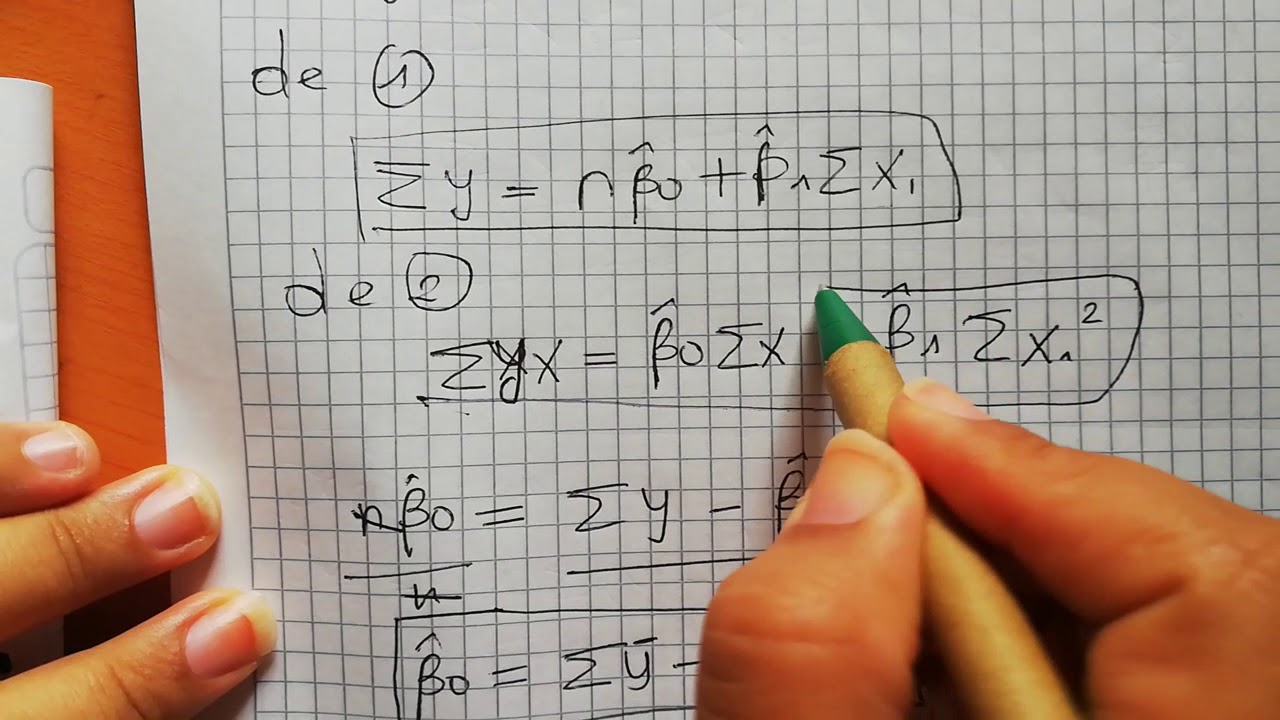 de ①
Σy = nβ̂0 + β̂1Σx1
de ②
Σyx = β̂0Σx β̂1Σx1²
nβ̂0 = Σy - β̂
n
β̂0 = Σȳ -